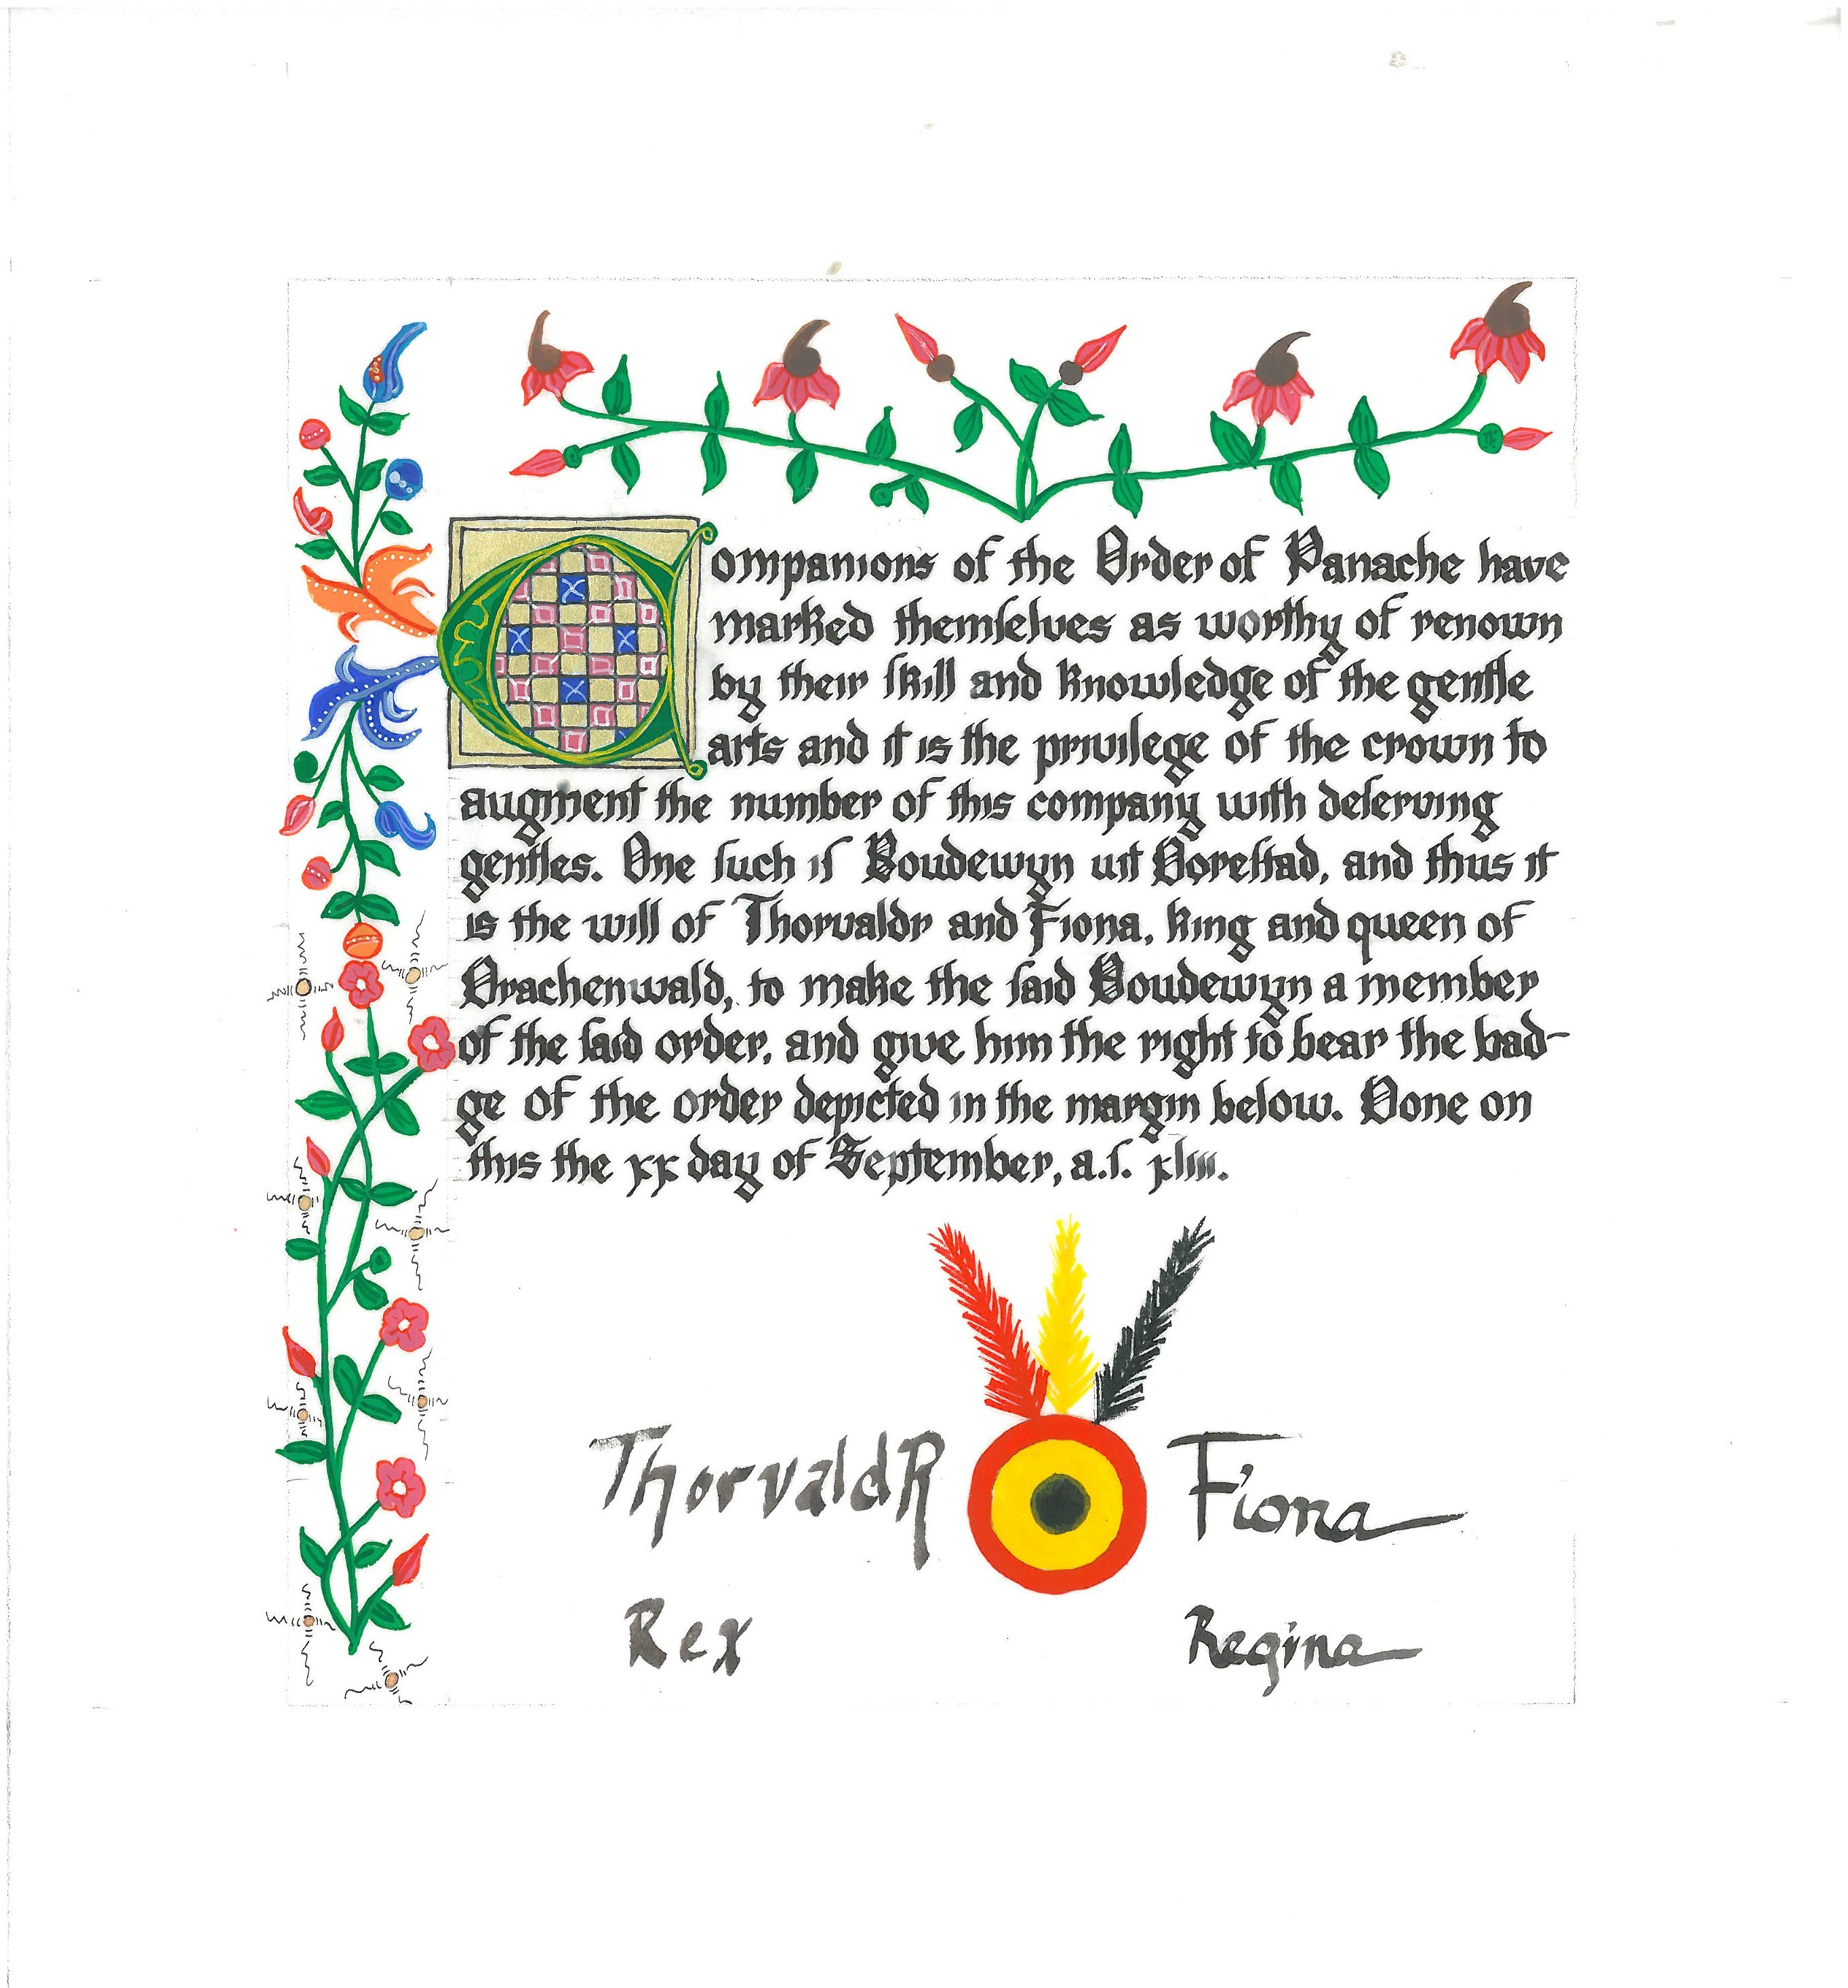 Companions of the Order of Panache have
marked themſelves as worthy of renown
by their ſkill and knowledge of the gentle
arts and it is the privilege of the crown to
augment the number of this company with deſerving
gentles. One ſuch iſ Boudewyn uit Doreſtad, and thus it
is the will of Thorvaldr and Fiona, king and queen of
Drachenwald, to make the ſaid Boudewyn a member
of the ſaid order, and give him the right to bear the bad-
ge of the order depicted in the margin below. Done on
this the xx day of September, a.ſ. xliii.
ThorvaldR Fiona
Rex Regina